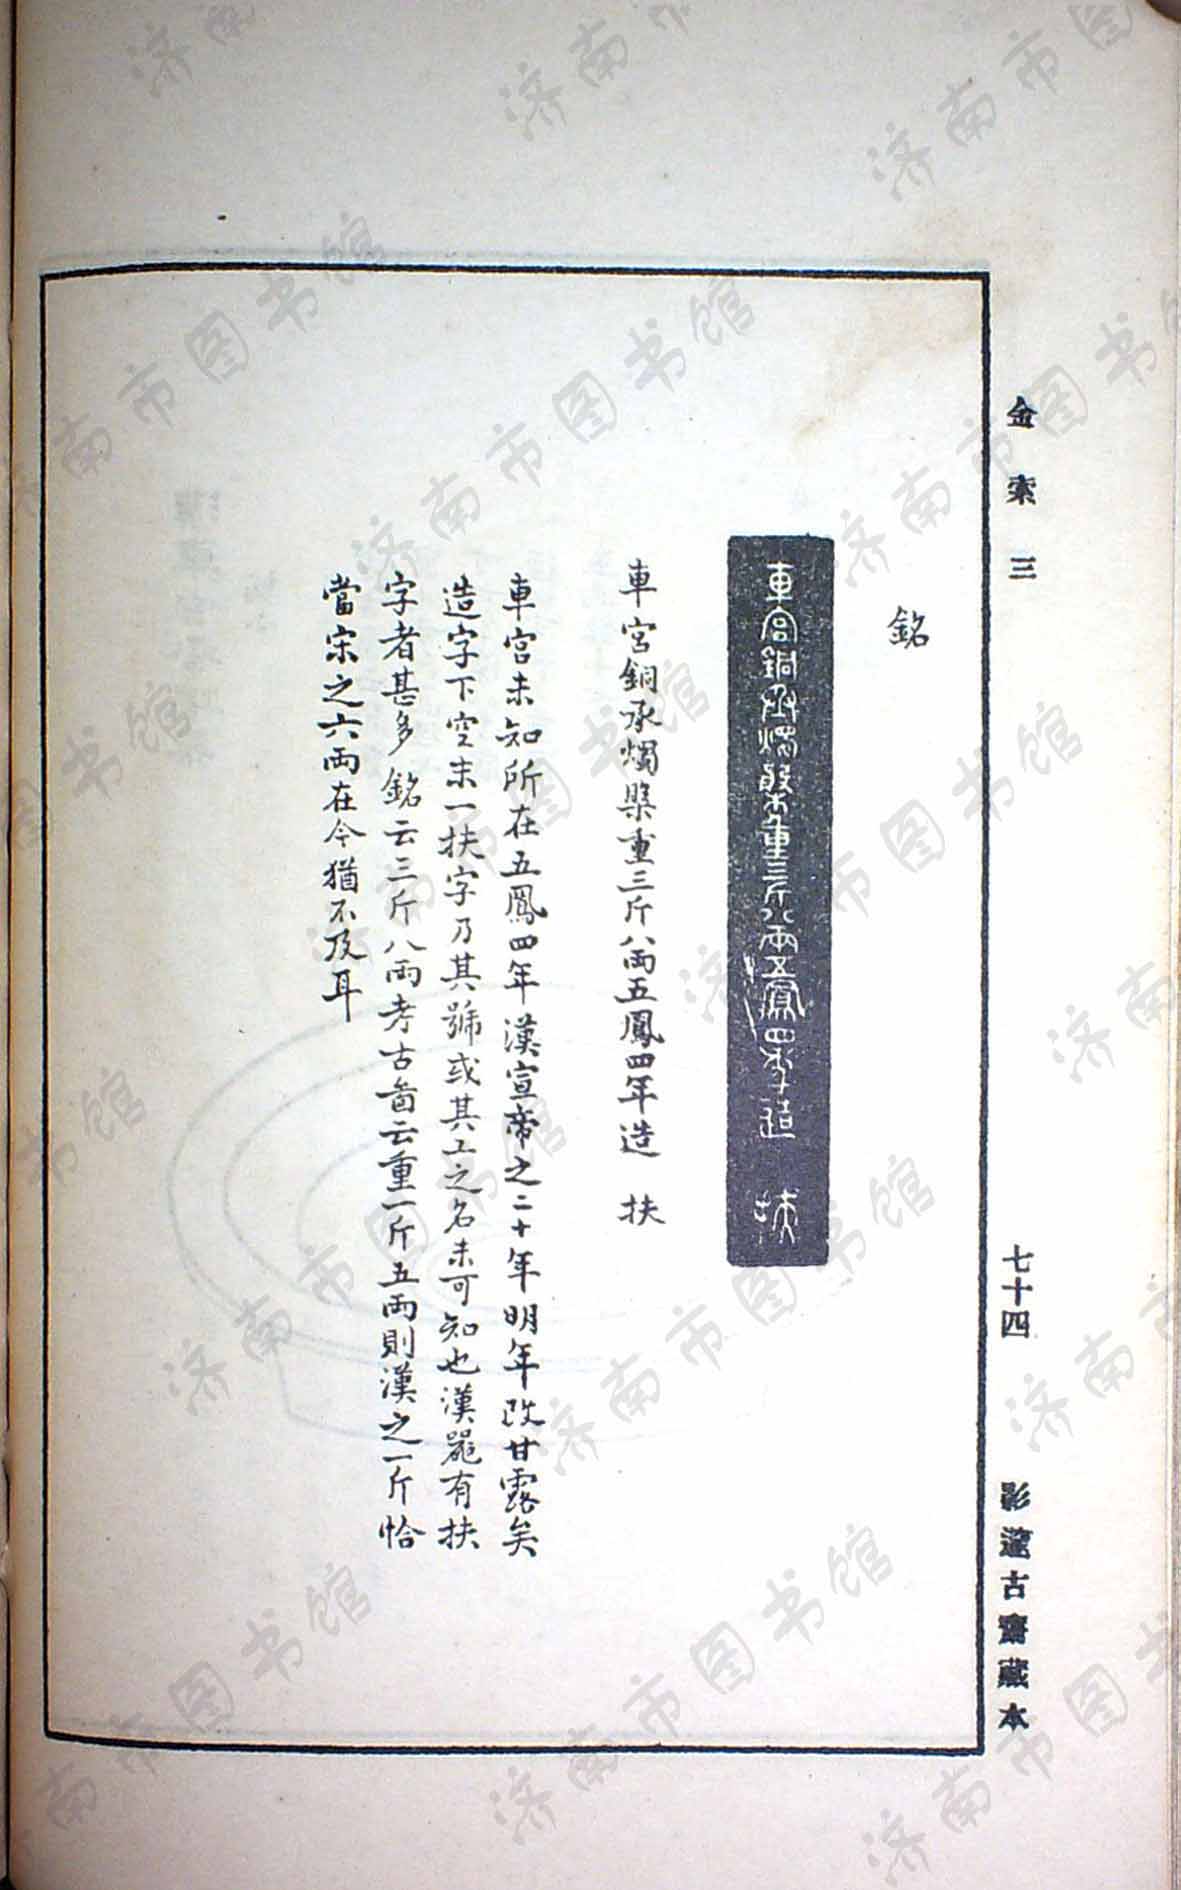 金索三
七十四
影邃古齋藏本
銘
車宮銅承燭槃重三斤八兩五鳳四年造 扶
車宮銅承燭槃重三斤八兩五鳳四年造 扶
車宮未知所在五鳳四年漢宣帝之二十年明年改甘露矣
造字下空末一扶字乃其號或其工之名未可知也漢器有扶
字者甚多銘云三斤八兩考古啚云重一斤五兩則漢之一斤恰
當宋之六兩在今猶不及耳
济南市图书馆